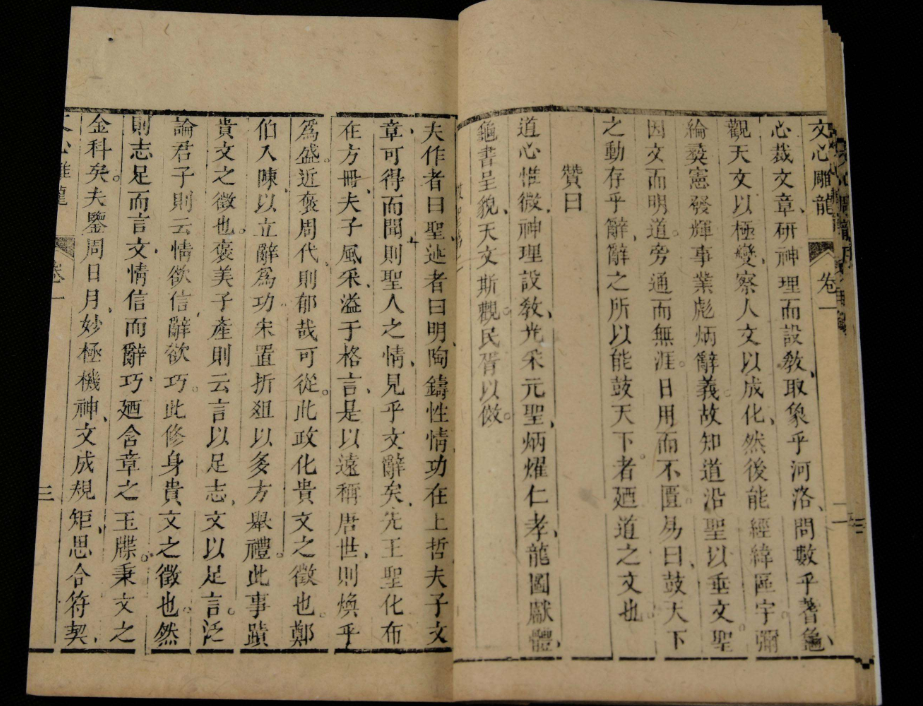 文心雕龍 卷一 二
心裁文章研神理而設敎、取象乎河洛、問數乎蓍龜、
觀天文以極變、察人文以成化、然後能經緯區宇、彌
綸彜憲、發輝事業、彪炳辭義、故知道沿聖以垂文、聖
因文而明道、旁通而無涯、日用而不匱、易曰鼓天下
之動存乎辭、辭之所以能鼓天下者、廼道之文也。
贊曰
道心惟微、神理設敎、光采元聖、炳燿仁孝、龍圖獻體、
龜書呈貌、天文斯觀、民胥以傚。
夫作者曰聖、述者曰明、陶鑄性情、功在上哲、夫子文
章可得而聞、則聖人之情、見乎文辭矣、先王聖化、布
在方冊、夫子風采、溢于格言、是以遠稱唐世、則煥乎
爲盛、近褒周代、則郁哉可從、此政化貴文之徵也。鄭
伯入陳、以立辭爲功、宋置折俎、以多方舉禮、此事蹟
貴文之徵也。褒美子產、則云言以足志、文以足言。泛
論君子、則云情欲信、辭欲巧。此修身貴文之徵也。然
則志足而言文、情信而辭巧、廼含章之玉牒、秉文之
金科矣。夫鑒周日月、妙極機神、文成規矩、思合符契、
文心雕龍 卷一 三